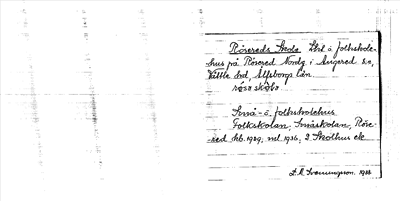 Rösereds Skola Skl o folkskole-
hus på Rösered Nordg. i Angered sn,
Vättle hd, Älfsborgs län
rösaskola
Små- o. folkskolehus
Folkskolan, Småskolan, Röse-
red kb. 1929, ml 1936, 2 Skolhus ek
1935